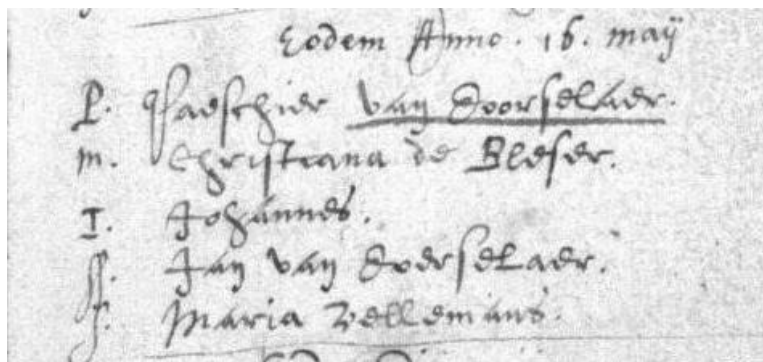 Eodem Anno. 16. maij
P. Paeschier van Doorselaer.
m. Christiana de Bleser.
I. Johannes.
ss. Jan van Doerselaer.
s. Maria Vellemans.